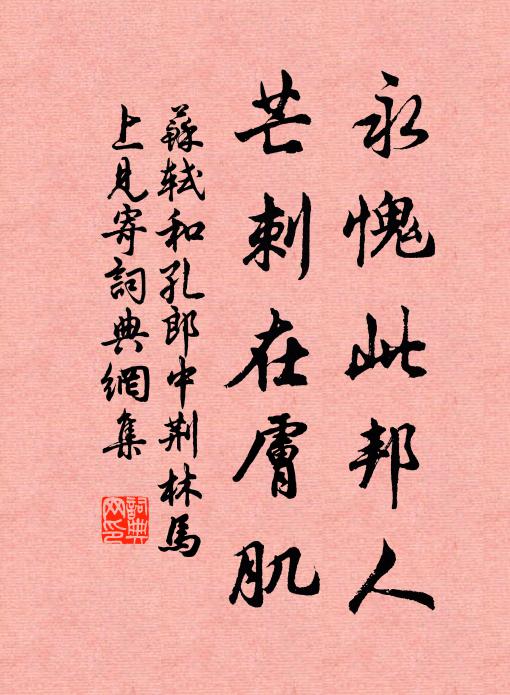 永愧此邦人
芒刺在膚肌
蘇軾和孔郎中荆林馬
上見寄詞典網集
詞典
网印